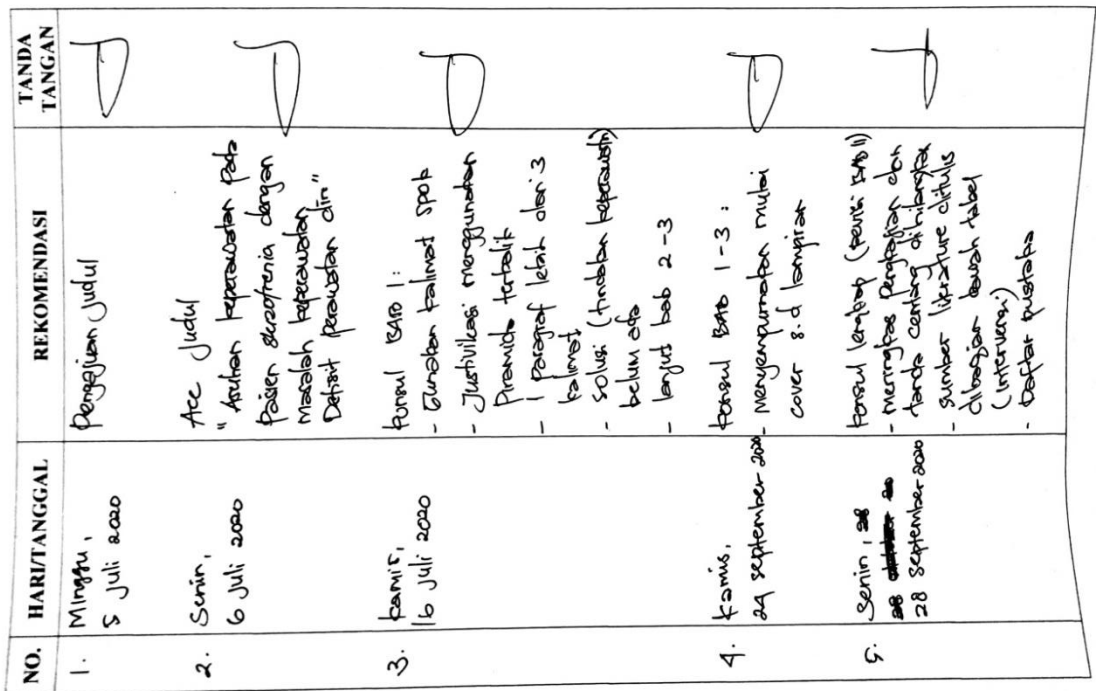 NO. HARI/TANGGAL REKOMENDASI TANDA TANGAN
1. Minggu, 5 Juli 2020
Pengajuan Judul
2. Senin, 6 Juli 2020
Acc Judul
" Asuhan keperawatan pada
pasien skizofrenia dengan
masalah keperawatan
Defisit perawatan diri"
3. kamis, 16 Juli 2020
konsul BAB 1 :
- Gunakan kalimat spok
- Justivikasi menggunakan
Piramida terbalik
- 1 paragraf lebih dari 3
kalimat
- solusi (tindakan keperawatan)
belum ada
- lanjut bab 2 - 3
4. kamis, 24 september 2020
konsul BAB 1 - 3 :
- menyempurnakan mulai
cover s.d lampiran
5. Senin, 28
28 september 2020
konsul lengkap (revisi BAB II)
- meringkas pengkajian dan
tanda centang dihilangkan
- sumber literature ditulis
dibagian bawah tabel
(intervensi)
- Daftar pustaka